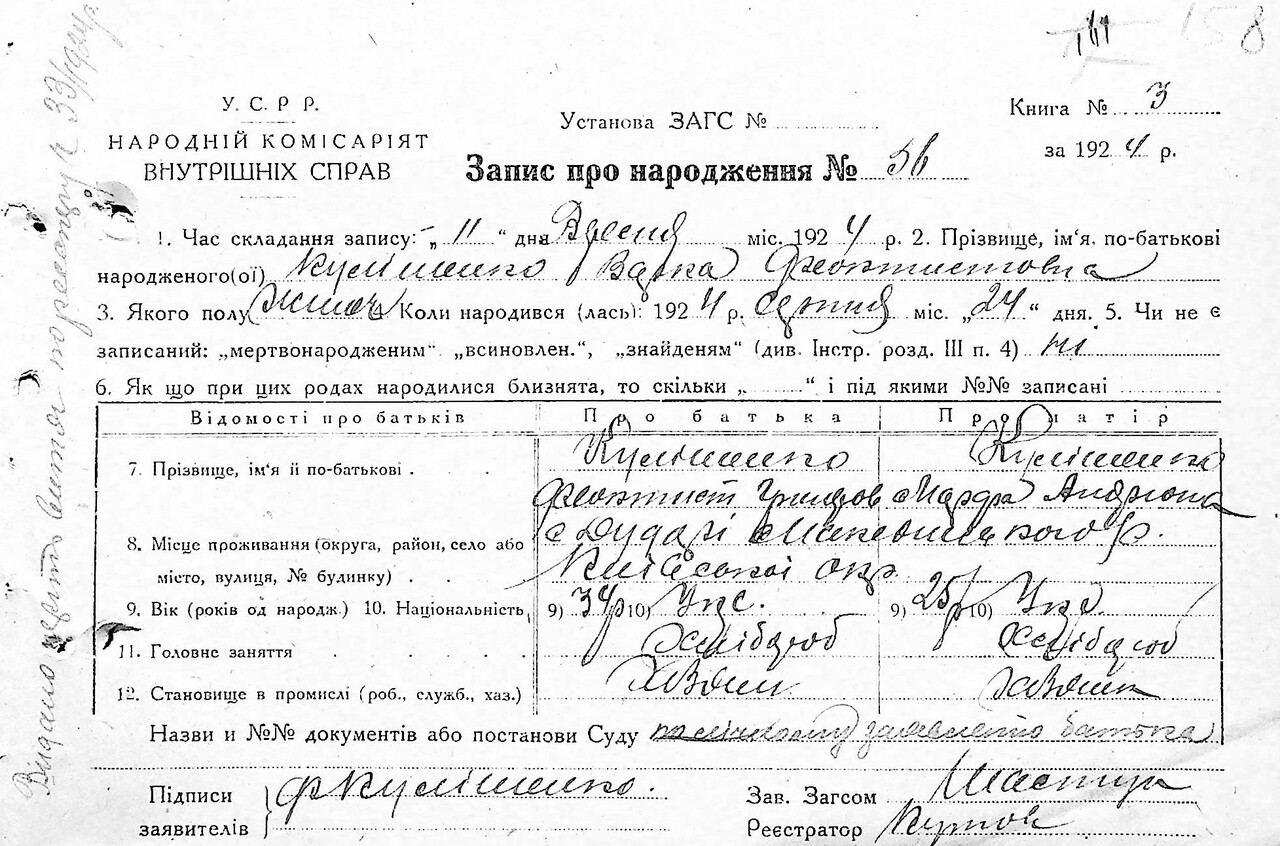 158
У. С. Р. Р.
НАРОДНІЙ КОМІСАРІЯТ
ВНУТРІШНІХ СПРАВ
Установа ЗАГС №
Книга № 3
за 1924 р.
Запис про народження № 56
1. Час складання запису: „ 11 “ дня Вресня міс. 1924 р. 2. Прізвище, ім'я, по-батькові
народженого(ої) Кулішенко Вдока Феоктистовна
3. Якого полу жіноч Коли народився (лась): 1924 р. Серпня міс. „24“ дня. 5. Чи не є
записаний: „мертвонародженим“ „всиновлен.“, „знайденям“ (див. Інстр. розд. III п. 4) ні
6. Як що при цих родах народилися близнята, то скільки „ “ і під якими №№ записані
Відомості про батьків Про батька Про матір
7. Прізвище, ім'я й по-батькові Кулішенко Кулішенко
Феоктист Марфа Андріовна
8. Місце проживання (округа, район, село або с Дударі р.
місто, вулиця, № будинку) Київської окр
9. Вік (років од народж.) 10. Національність 9) 34 р 10) Укр. 9) 25 р 10) Укр.
11. Головне заняття Хлібороб Хлібороб
12. Становище в промислі (роб., служб., хаз.) Хазяин Хазяика
Назви и №№ документів або постанови Суду по заявлению батька
Підписи Ф Кулішенко. Зав. Загсом
заявителів Реєстратор
Видано 33/1924р